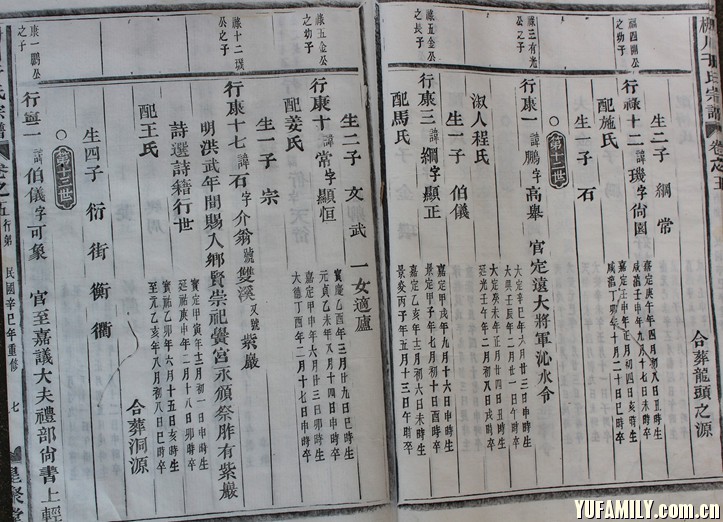 合葬龍頭之源
生二子 綱 常
福四開公之幼子
行祿十二 諱璣字尙園
嘉定庚午年四月初八日丑時生
咸淳
配施氏
嘉定壬申年正月初四日亥時生
咸淳丁卯年十月二十日
生一子 石
第十二世
祿三有光公之子
行康一 諱鵬字高舉 官定遠大將軍沁水令
嘉定辛巳年六月廿三日申時生
大
淑人程氏
嘉定癸未年正月廿四日丑時生
延光壬午年二月初八日戌時卒
生一子 伯儀
祿五金公之長子
行康三 諱綱字顯正
嘉定甲戌年九月十六日申時生
景定甲子年七月初十日酉時卒
配馬氏
嘉定乙亥年十月初六日未時生
景炎丙子年五月十三日午時卒
生二子 文 武 一女適廬
祿五金公之幼子
行康十 諱常字顯恒
寶慶乙酉年三月廿九日巳時生
元貞乙未年八月十四日申時卒
配姜氏
嘉定甲申年六月廿三日卯時生
大德丁酉年二月十七日申時卒
生一子 宗
祿十二璣公之子
行康十七 諱石字介翁號雙溪又號紫巖
明洪武年間賜入鄉賢崇祀黌宮永頒祭胙有紫巖
詩選詩籍行世
嘉定甲寅年十二月初一日申時生
延祐庚申年二月十八日卯時卒
配王氏
寶祐乙卯年六月十五日亥時生
至元乙亥年八月初八日巳時卒
合葬洞源
生四子 衍 街 衡 衢
第十三世
康一鵬公之子
行寧一 諱伯儀字可象 官至嘉議大夫禮部尙書上輕
卷之五 行第 民國辛巳年重修 七
YUFAMILY.com.cn